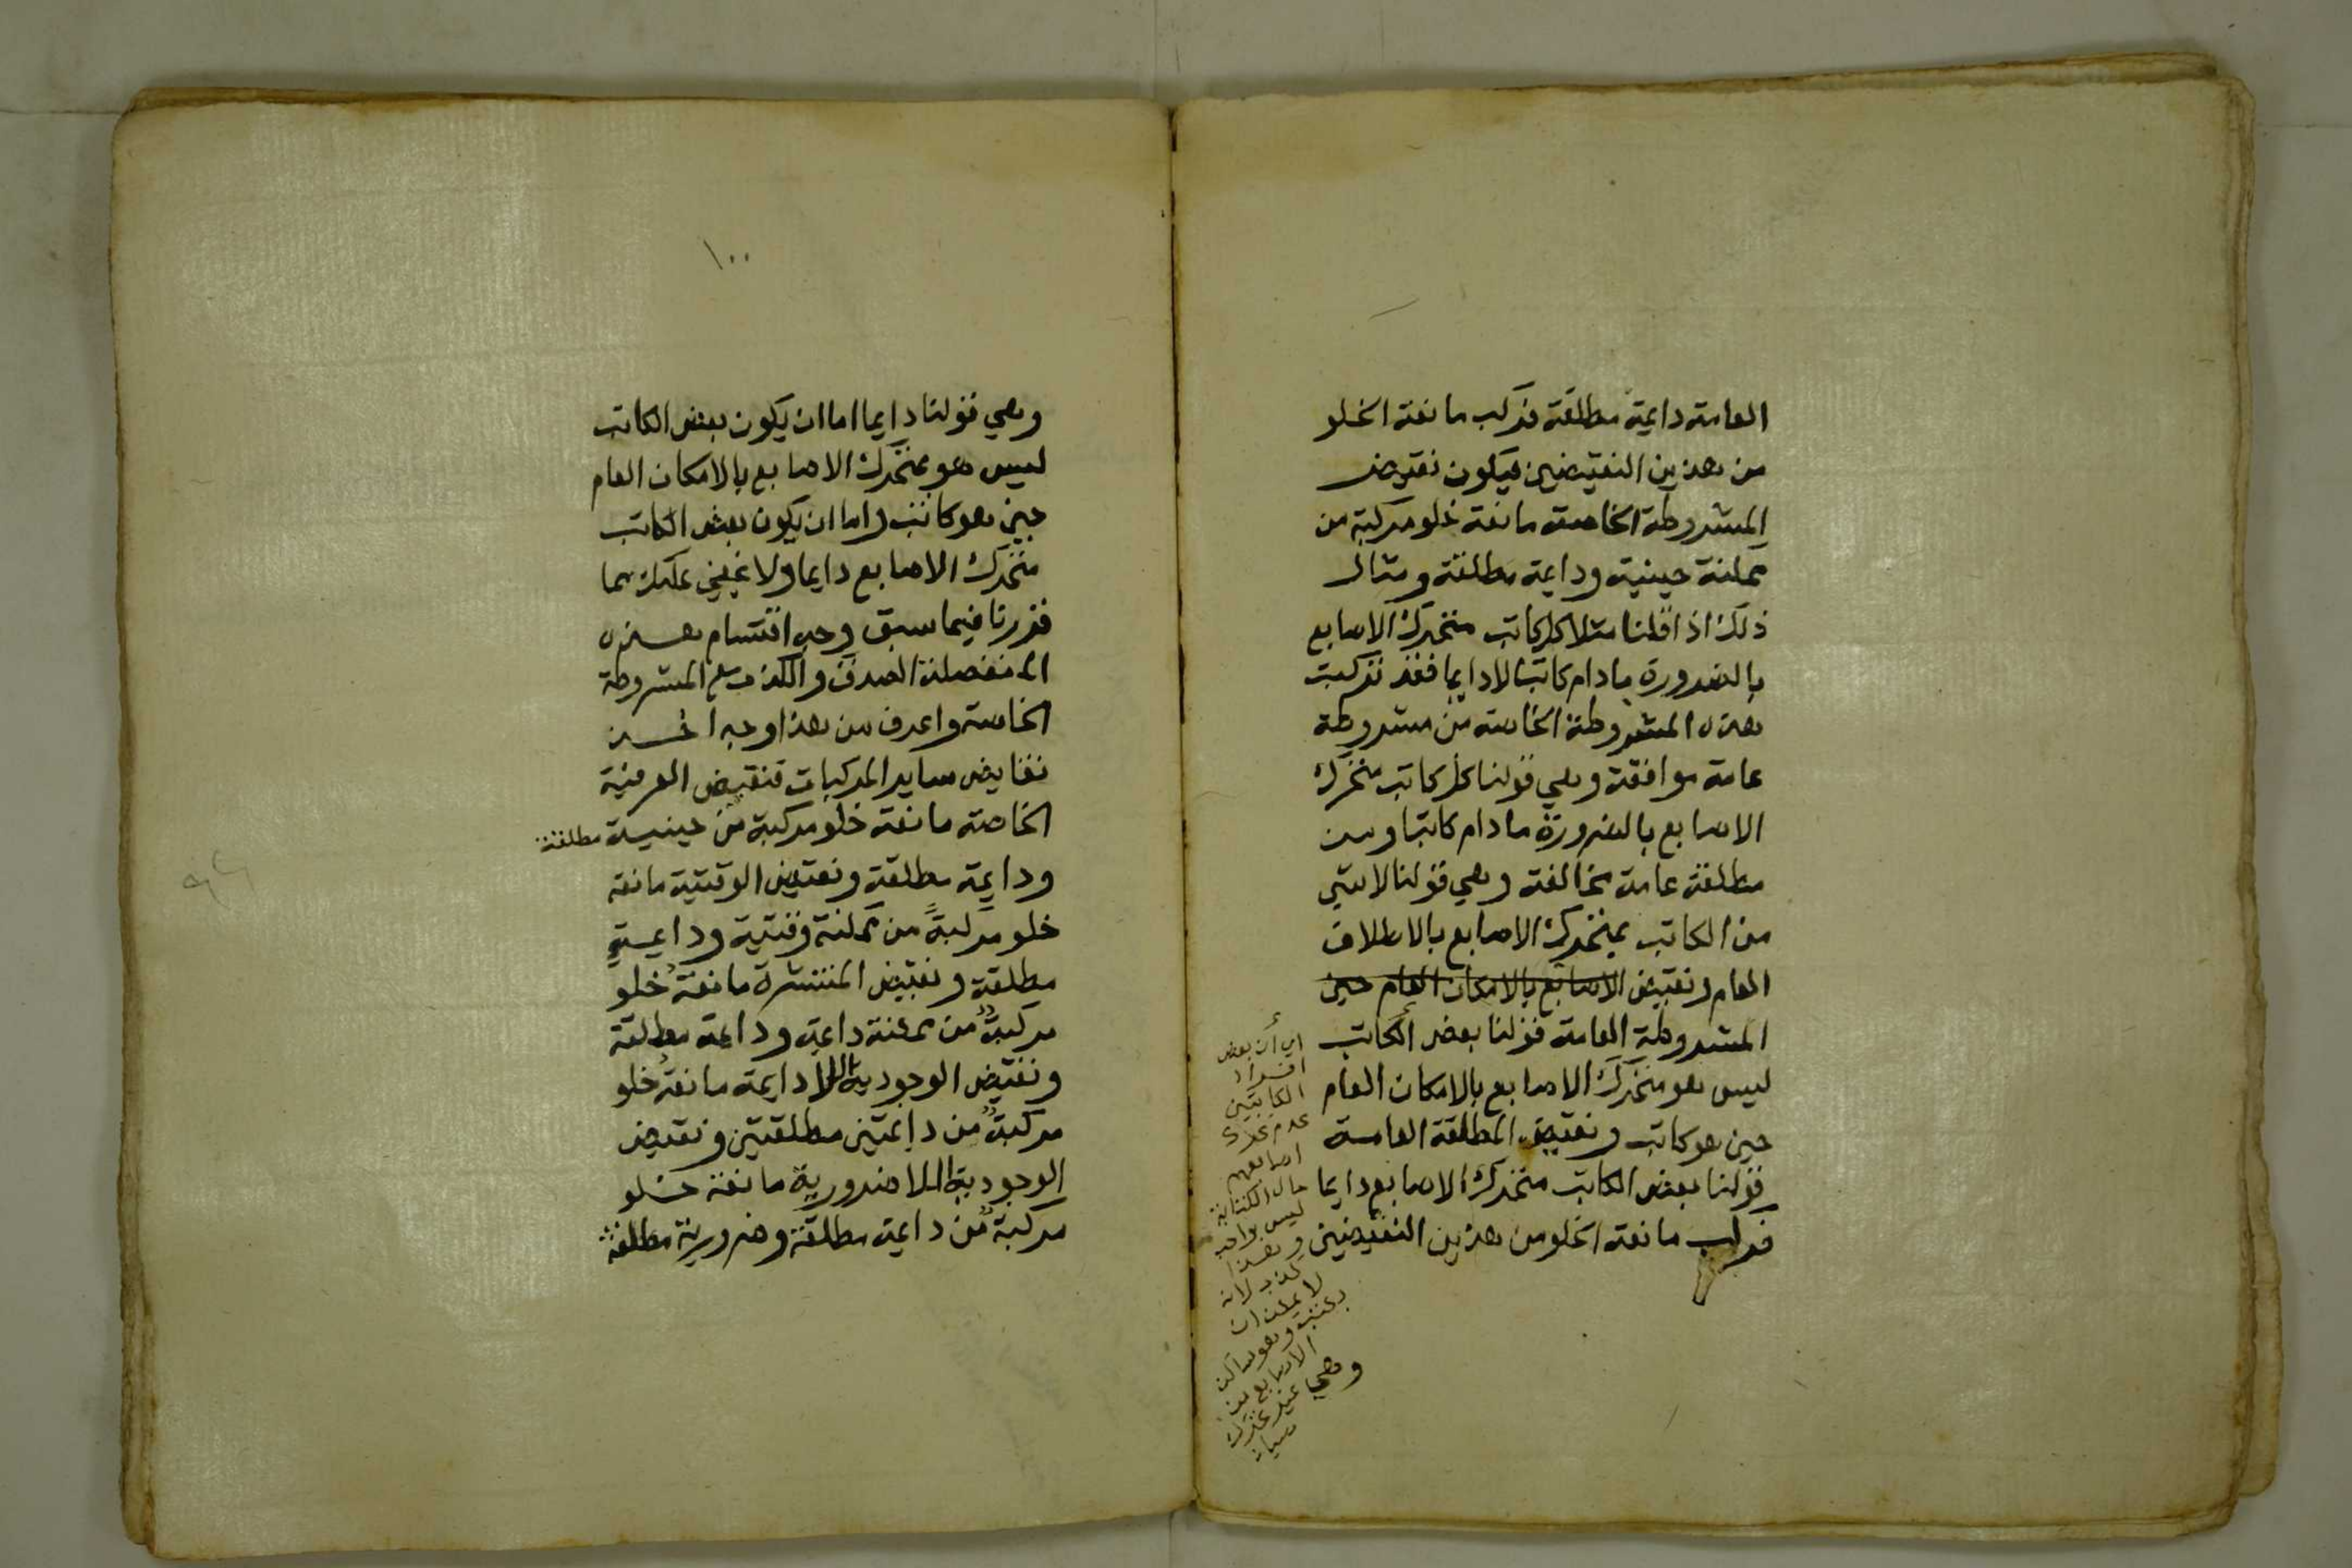 العامة دايمة مطلقة فركب مانعة الخلو
من هذين النقيضين فيكون نقيض
المشروطة الخاصة مانعة خلو مركبة من
ممكنة حينية ودايمة مطلقة ومثال
ذلك اذا قلنا مثلا كل كاتب متحرك الاصابع
بالضرورة مادام كاتبا لا دايما فقد تركبت
هذه المشروطة الخاصة من مشروطة
عامة موافقة وهي قولنا كل كاتب متحرك
الاصابع بالضرورة مادام كاتبا ومن
مطلقة عامة مخالفة وهي قولنا لا شي
من الكاتب بمتحرك الاصابع بالاطلاق
العام ونقيض الاصابع بالامكان العام حين
المشروطة العامة قولنا بعض الكاتب
ليس هو متحرك الاصابع بالامكان العام
حين هو كاتب ونقيض المطلقة العامة
قولنا بعض الكاتب متحرك الاصابع دايما
فركب مانعة الخلو من هذين النقيضين
اي أن بعض
افراد
الكاتبين
عدم تحرك
اصابعهم
حال الكتابة
ليس بواجب
وهذا
كذب لانه
لا يمكن ان
يكتب وهو ساكن
الاصابع من
غير تحرك
وهي
١٠٠
وهي قولنا دايما اما ان يكون بعض الكاتب
ليس هو بمتحرك الاصابع بالامكان العام
حين هو كاتب واما ان يكون بعض الكاتب
متحرك الاصابع دايما ولا يخفي عليك مما
قررنا فيما سبق وجه اقتسام هذه
المنفصلة الصدق والكذب مع المشروطة
الخاصة واعرف من هذا وجه اخذ
نقايض ساير المركبات فنقيض العرفية
الخاصة مانعة خلو مركبة من حينية مطلقة
ودايمة مطلقة ونقيض الوقتية مانعة
خلو مركبة من ممكنة وقتية ودايمة
مطلقة ونقيض المنتشرة مانعة خلو
مركبة من ممكنة دايمة ودايمة مطلقة
ونقيض الوجودية اللادايمة مانعة خلو
مركبة من دايمتين مطلقتين ونقيض
الوجودية اللاضرورية مانعة خلو
مركبة من دايمة مطلقة وضرورية مطلقة